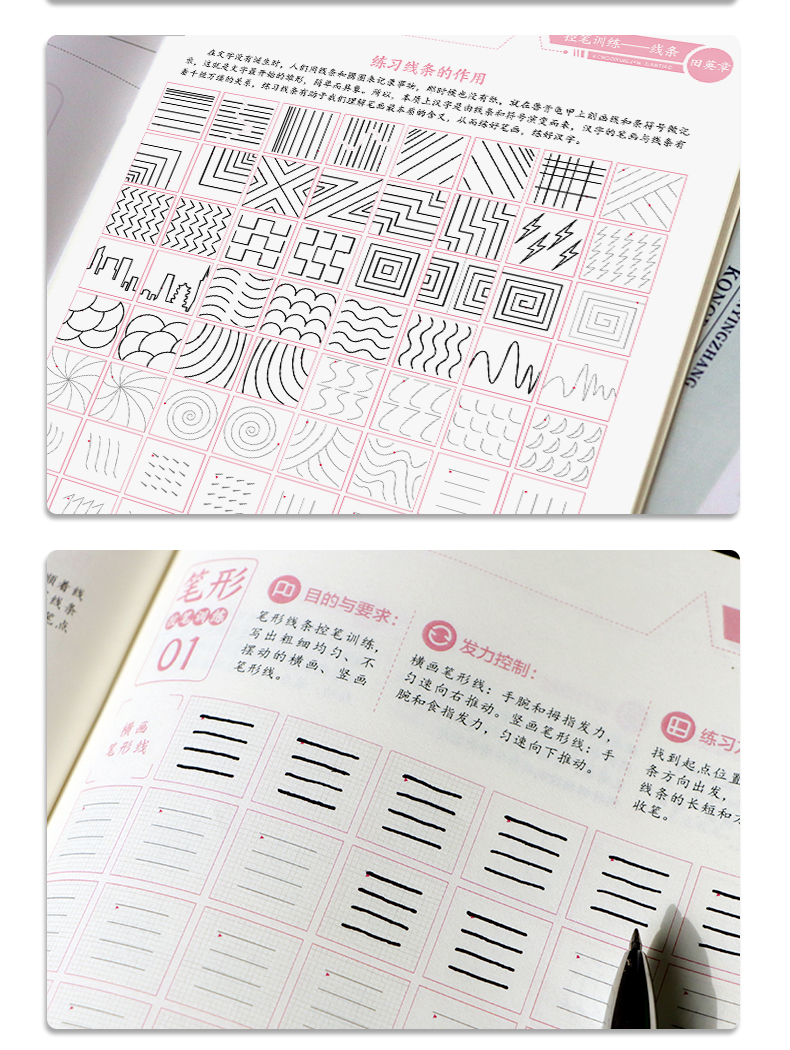 控笔训练——线条
田英章
练习线条的作用
在文字没有诞生时，人们用线条和圆圈来记录事物，那时候也没有纸，就在兽骨龟甲上刻画线和条符号做记
录，这就是文字最开始的雏形，简单而具象。所以，本质上汉字是由线条和符号演变而来，汉字的笔画与线条有
着千丝万缕的关系，练习线条有助于我们理解笔画最本质的含义，从而练好笔画，练好汉字。
YINGZHANG
笔形
控笔训练
01
目的与要求：
笔形线条控笔训练，
写出粗细均匀、不
摆动的横画、竖画
笔形线。
发力控制：
横画笔形线：手腕和拇指发力，
匀速向右推动。竖画笔形线：手
腕和食指发力，匀速向下推动。
练习
找到起点位置
条方向出发，
线条的长短和
收笔。
横画
笔形线
着线
线条
笔点